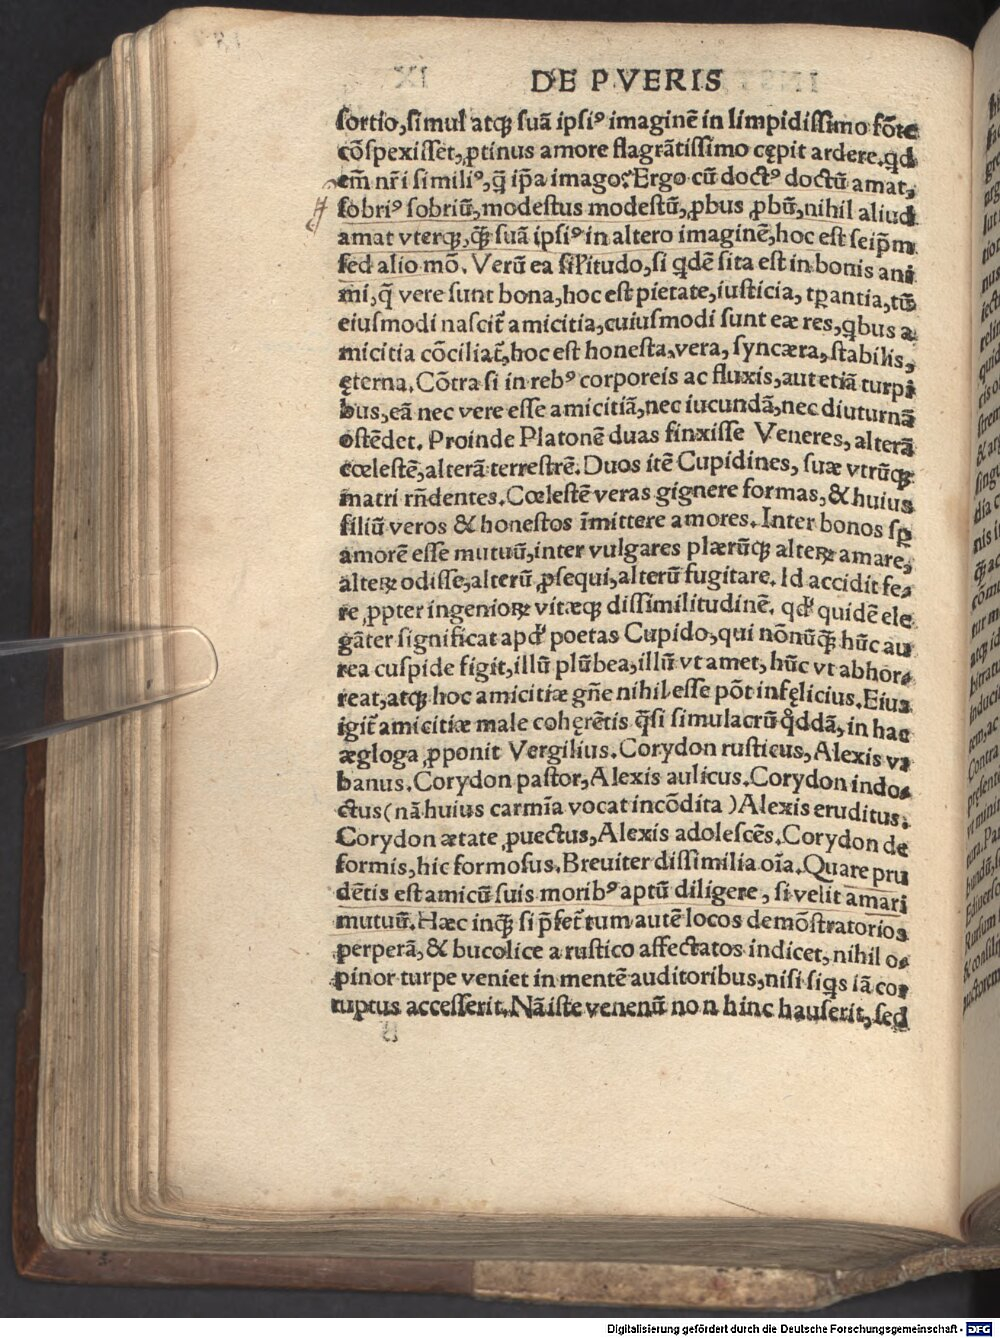 DE PVERIS
ſortio, ſimul atqꝫ ſuā ipſiꝰ imaginē in limpidiſſimo fōte
cōſpexiſſet, ꝓtinus amore flagrātiſſimo cępit ardere. qd
em̄ nr̄i ſimiliꝰ, q̄ ip̄a imago? Ergo cū doctꝰ doctū amat,
ſobriꝰ ſobriū, modeſtus modeſtū, ꝓbus ꝓbū, nihil aliud
amat vterqꝫ, q̄ꝫ ſuā ipſiꝰ in altero imaginē, hoc eſt ſeip̄m
ſed alio mō. Verū ea ſil'itudo, ſi qdē ſita eſt in bonis ani
mi, q̄ vere ſunt bona, hoc eſt pietate, iuſticia, tꝑantia, tū
eiuſmodi naſcit̄ amicitia, cuiuſmodi ſunt eæ res, qbus a
micitia cōciliat̄, hoc eſt honeſta, vera, ſyncæra, ſtabilis,
ęterna. Cōtra ſi in rebꝰ corporeis ac fluxis, aut etiā turpi
bus, eā nec vere eſſe amicitiā, nec iucundā, nec diuturnā
oſtēdet. Proinde Platonē duas finxiſſe Veneres, alterā
cœleſtē, alterā terreſtrē. Duos itē Cupidines, ſuæ vtrūqꝫ
matri rn̄dentes. Cœleſtē veras gignere formas, & huius
filiū veros & honeſtos īmittere amores. Inter bonos ſꝑ
amorē eſſe mutuū, inter vulgares plærūqꝫ alteꝝ amare,
alteꝝ odiſſe, alterū ꝓſequi, alterū fugitare. Id accidit fe-
re ꝓpter ingenioꝝ vitæqꝫ diſſimilitudinē. qd' quidē ele
gāter ſignificat apd' poetas Cupido, qui nōnūq̄ꝫ hūc au
rea cuſpide figit, illū plūbea, illū vt amet, hūc vt abhor-
reat, atqꝫ hoc amicitiæ gn̄e nihil eſſe pōt infęlicius. Eius
igit̄ amicitiæ male cohęrētis q̄ſi ſimulacrū qddā, in hac
ægloga ꝓponit Vergilius. Corydon ruſticus, Alexis vr
banus. Corydon paſtor, Alexis aulicus. Corydon indo-
ctus (nā huius carmīa vocat incōdita) Alexis eruditus.
Corydon ætate ꝓuectus, Alexis adoleſcēs. Corydon de
formis, hic formoſus. Breuiter diſſimilia oīa. Quare pru
dētis eſt amicū ſuis moribꝰ aptū diligere, ſi velit amari
mutuū. Hæc inqꝫ ſi p̄fet̄ tum autē locos demōſtratorios
perperā, & bucolice a ruſtico affectatos indicet, nihil o-
pinor turpe veniet in mentē auditoribus, niſi ſiqs iā cor
ruptus acceſſerit. Nā iſte venenū non hinc hauſerit, ſed
Digitalisierung gefördert durch die Deutsche Forschungsgemeinschaft - DFG